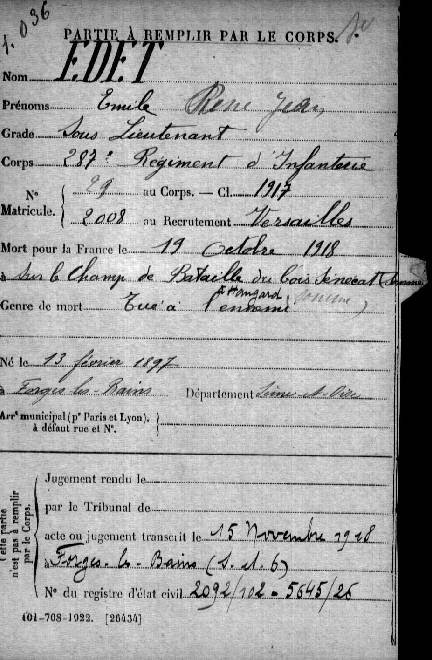 1.036
PARTIE À REMPLIR PAR LE CORPS.
Nom EDET
Prénoms Emile René Jean
Grade Sous Lieutenant
Corps 287e Régiment d'Infanterie
N° Matricule. 99 au Corps. — Cl. 1917
2008 au Recrutement Versailles
Mort pour la France le 19 Octobre 1918
à Sur le Champ de Bataille du bois Senecat (Somme
Genre de mort Tué à l'ennemi
(Somme)
Né le 13 février 1897
à Forges-les-Bains Département Seine-et-Oise
Arrt municipal (pr Paris et Lyon),
à défaut rue et N°.
Cette partie n'est pas à remplir par le Corps.
Jugement rendu le
par le Tribunal de
acte ou jugement transcrit le 15 Novembre 1918
à Forges-les-Bains (S. et O)
N° du registre d'état civil 2092/102 = 5645/26
101-708-1922. [26434]